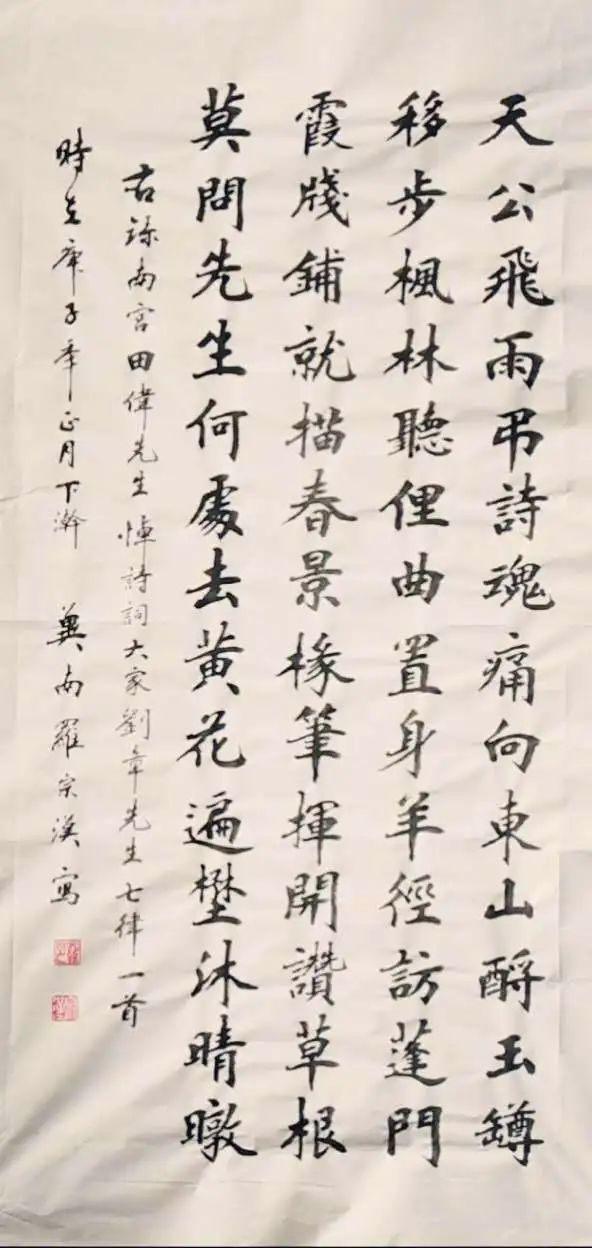 天公飛雨弔詩魂痛向東山酹玉罇
移步楓林聽俚曲置身羊徑訪蓬門
霞牋鋪就描春景椽筆揮開讚草根
莫問先生何處去黃花遍壄沐晴暾
右錄南宮田偉先生悼詩詞大家劉章先生七律一首
時在庚子年正月下澣 冀南羅宗漢寫